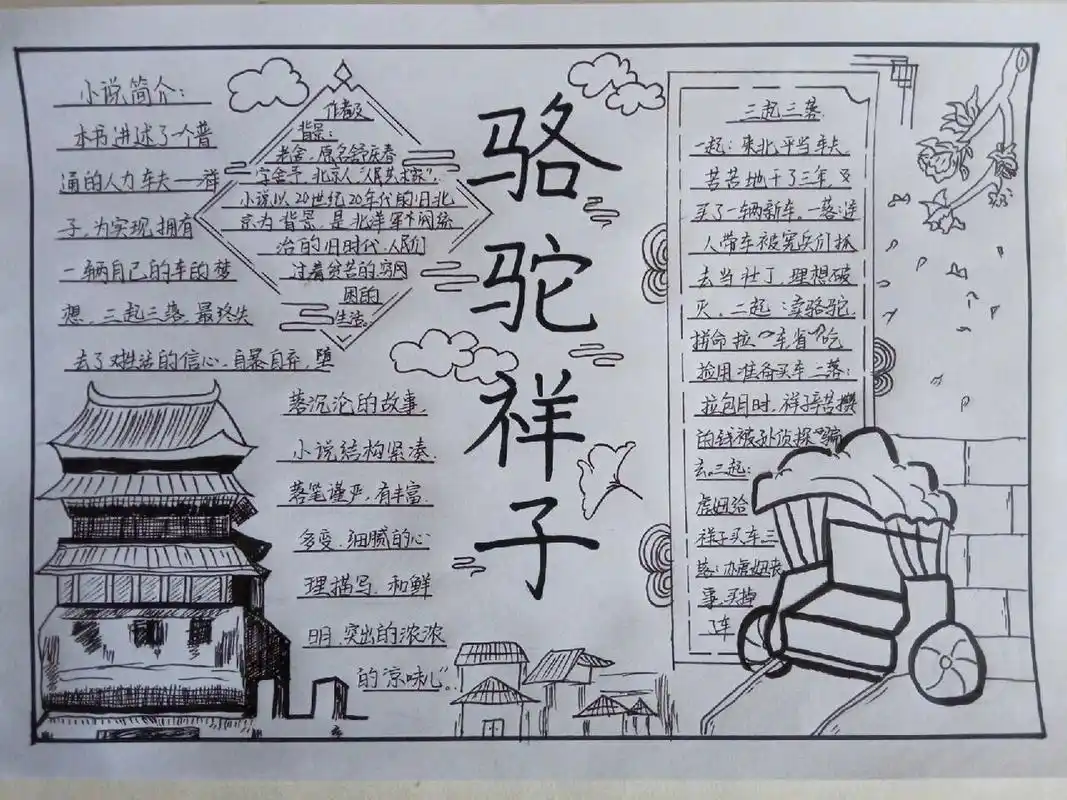 小说简介：
本书进述了一个普
通的人力车夫一祥
子，为实现拥有
一辆自己的车的梦
想，三起三落，最终失
去了对生活的信心，自暴自弃，堕
落沉沦的故事，
小说结构紧凑，
落笔谨严，有丰富，
多变，细腻的心
理描写，和鲜
明，突出的浓浓
的"京味儿"。
作者及
背景：
老舍，原名舒庆春
字舍予，北京人，"人民艺术家"，
小说以20世纪20年代的旧北
京为背景，是北洋军阀统
治的旧时代，人民们
过着贫苦的穷困
困的
生活。
骆驼祥子
三起三落
一起：来北平当车夫，
苦苦地干了三年，又
买了一辆新车。一落：连
人带车被宪兵们抓
去当壮丁，理想破
灭，二起：卖骆驼，
拼命拉车，省吃
俭用准备买车 二落：
拉包月时，祥子辛苦攒
的钱被孙侦探骗
去。三起：
虎妞给
祥子买车 三
落：办虎妞丧
事，买掉
了车